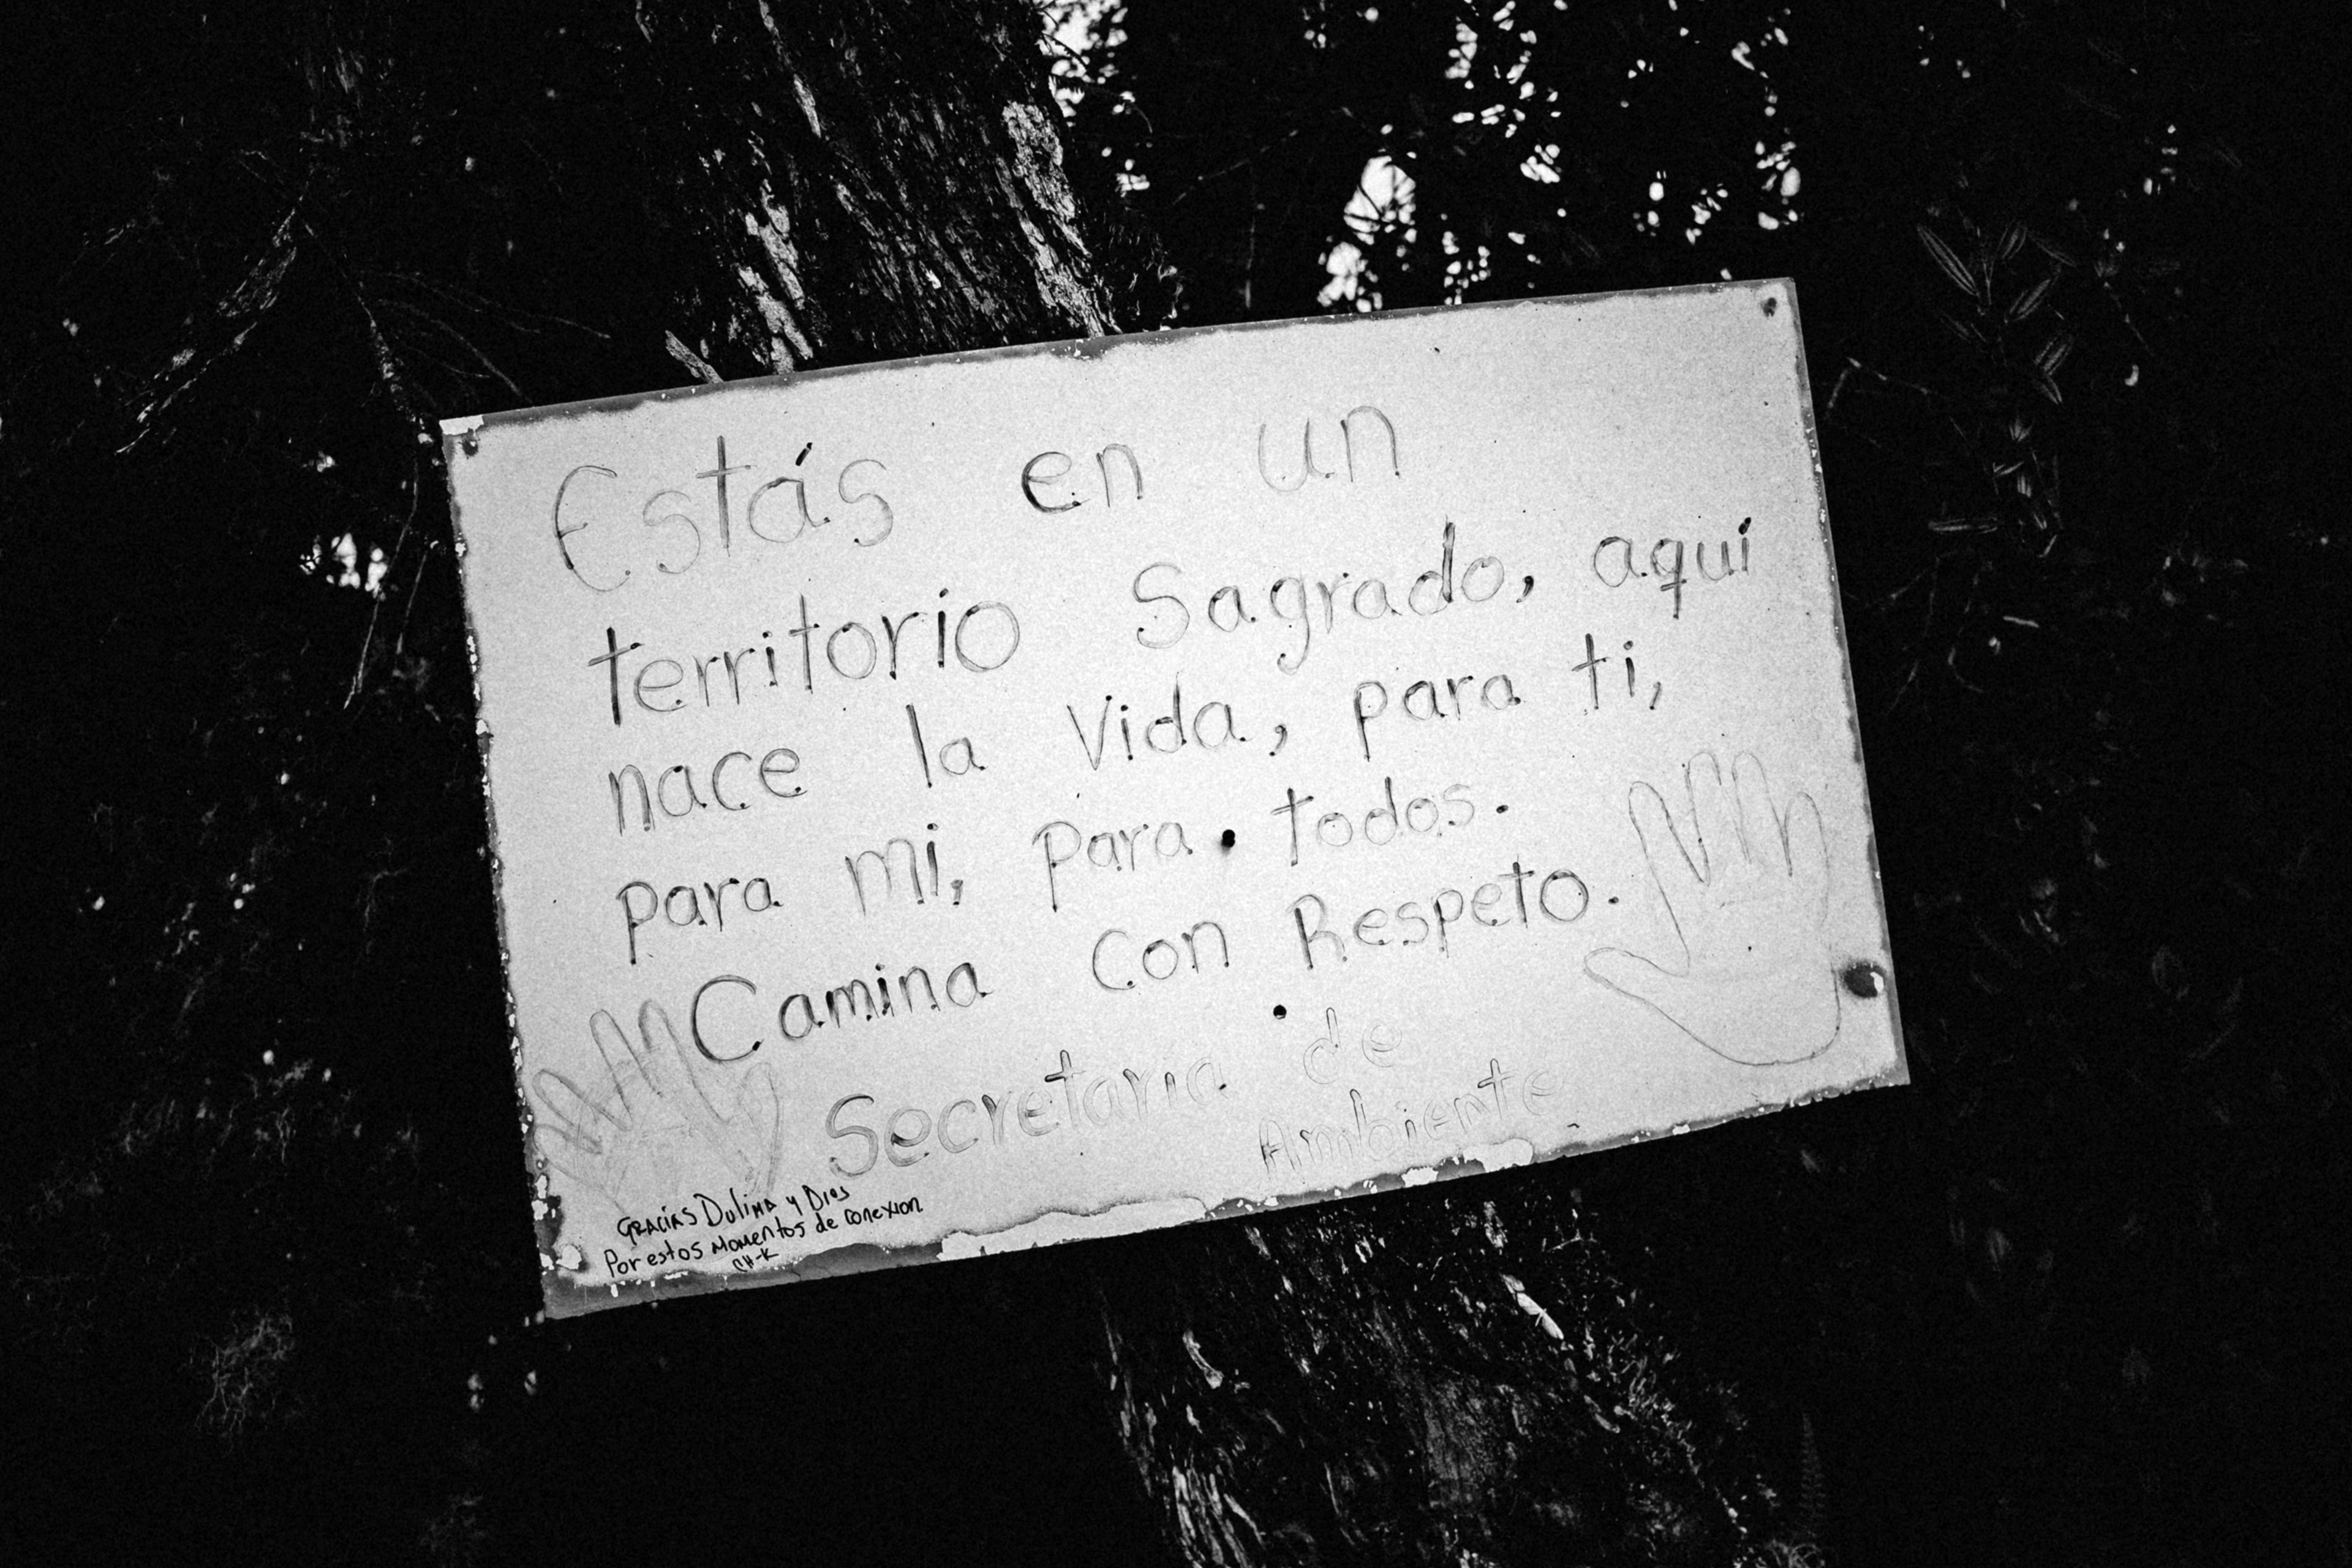 Estás en un
territorio Sagrado, aquí
nace la Vida, para ti,
para mi, para todos.
Camina con Respeto.
Secretaria de
Ambiente
GRACIAS DuliMA y Dios
Por estos MoMentos de conexion
CH-K